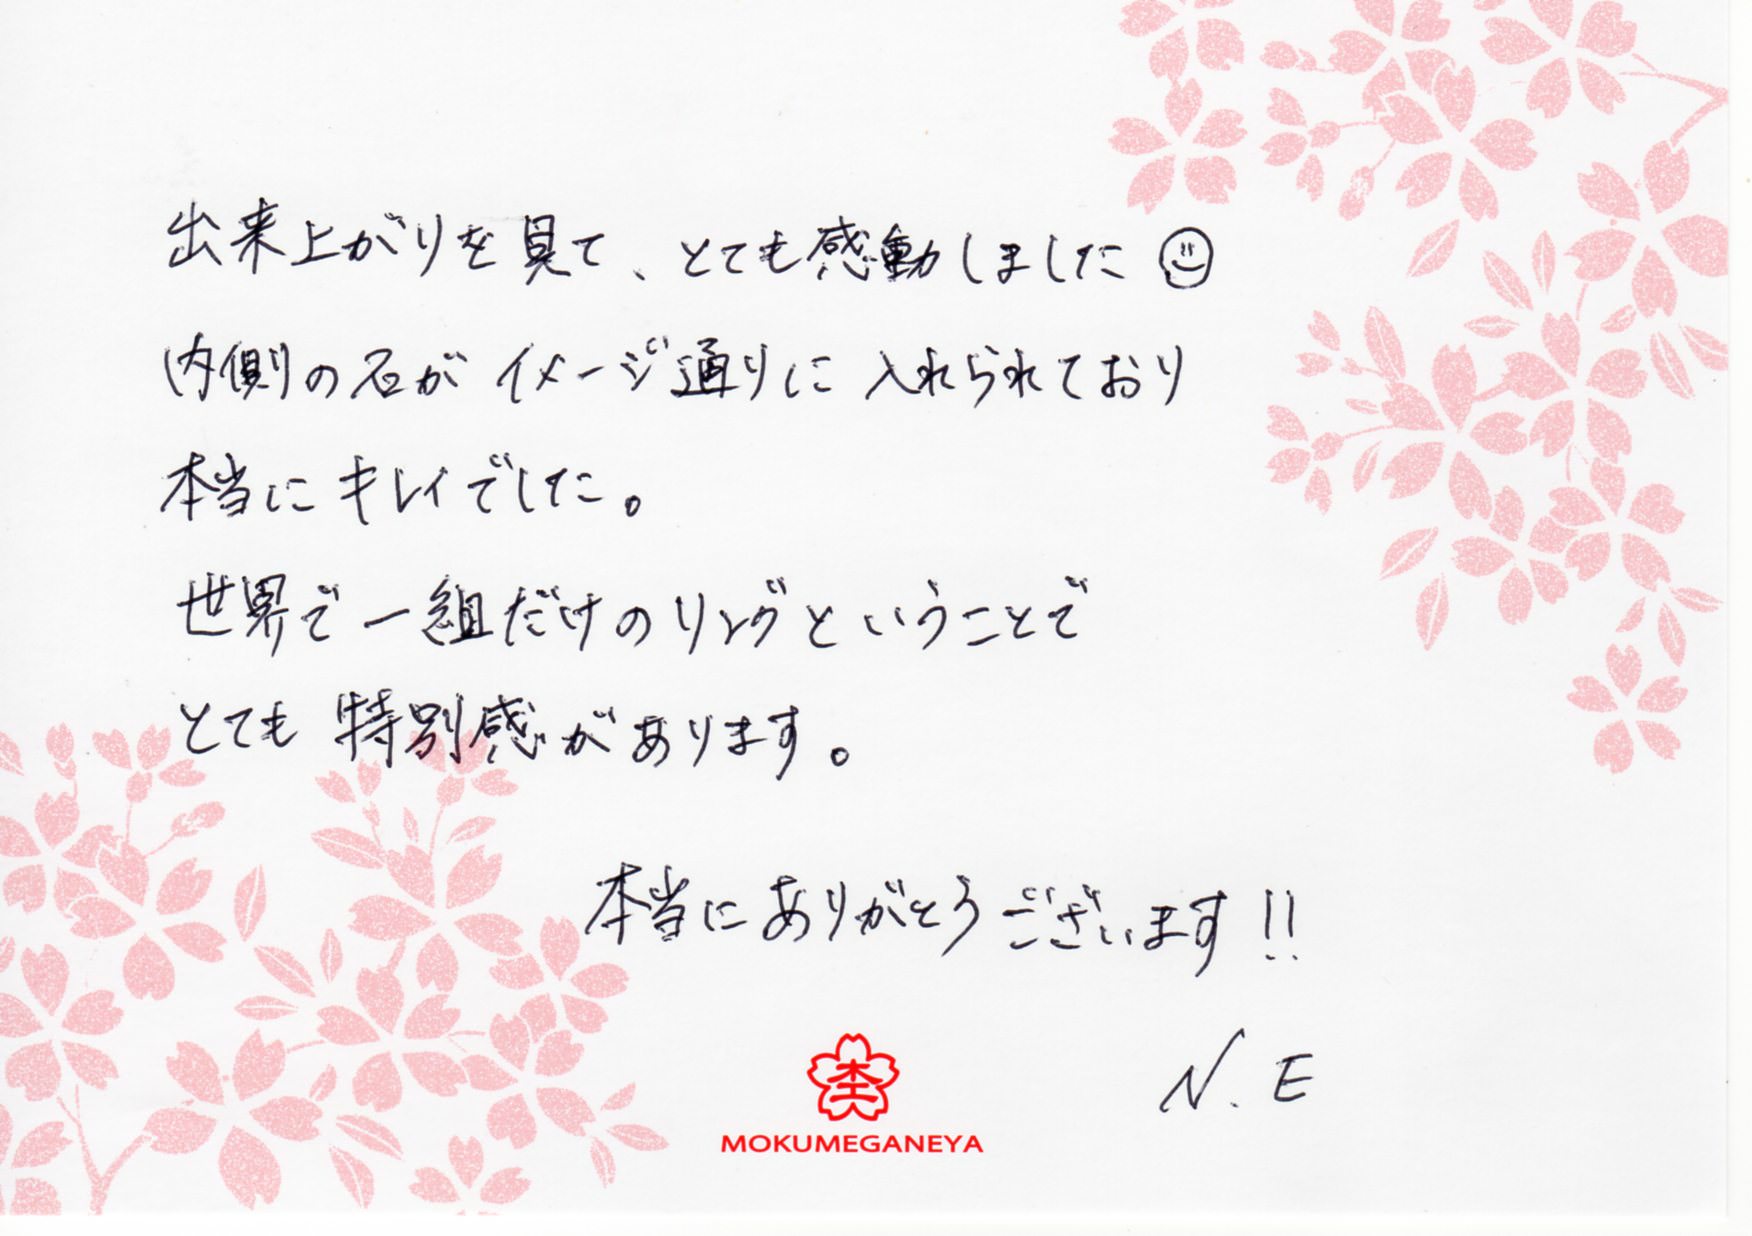 出来上がりを見て、とても感動しました
内側の石がイメージ通りに入れられており
本当にキレイでした。
世界で一組だけのリングということで
とても特別感があります。
本当にありがとうございます!!
N.E
MOKUMEGANEYA